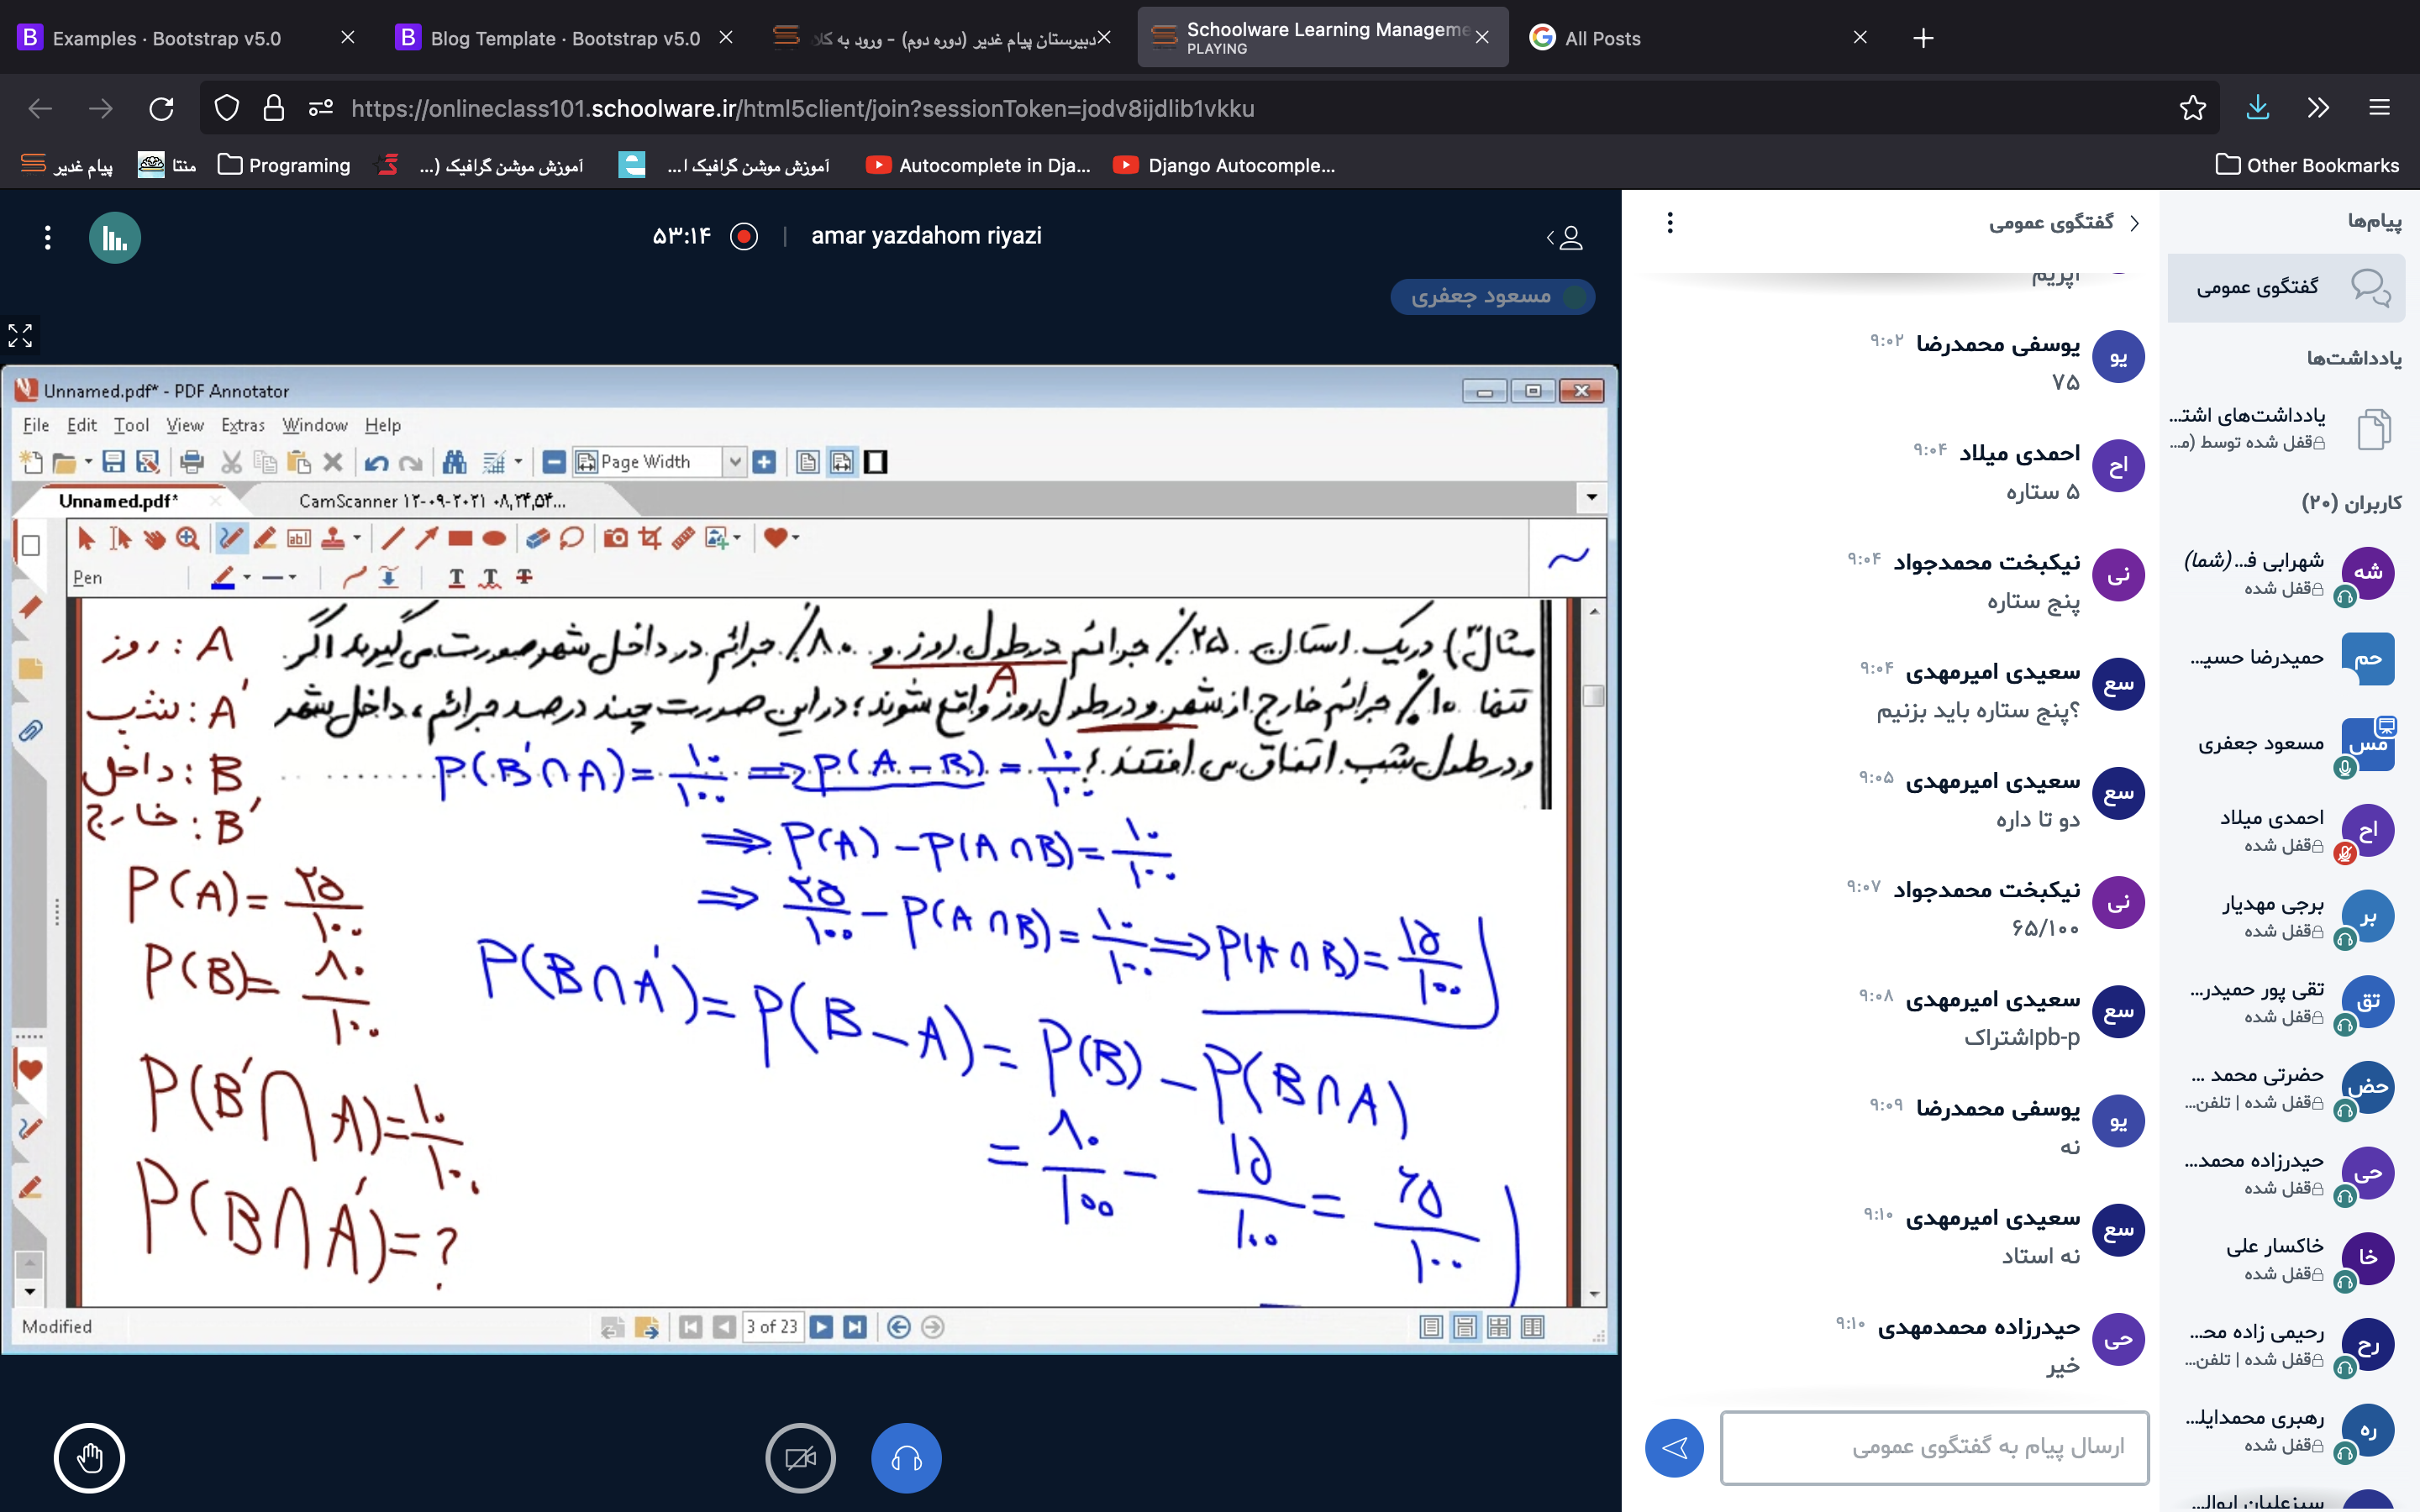 Examples · Bootstrap v5.0
Blog Template · Bootstrap v5.0
دبیرستان پیام غدیر (دوره دوم) - ورود به کلا
Schoolware Learning Manageme
PLAYING
All Posts
https://onlineclass101.schoolware.ir/html5client/join?sessionToken=jodv8ijdlib1vkku
پیام غدیر
منتا
Programing
آموزش موشن گرافیک (...
آموزش موشن گرافیک ا...
Autocomplete in Dja...
Django Autocomple...
Other Bookmarks
۵۳:۱۴
amar yazdahom riyazi
مسعود جعفری
Unnamed.pdf* - PDF Annotator
File Edit Tool View Extras Window Help
Page Width
Unnamed.pdf*
CamScanner ۱۲-۰۹-۲۰۲۱ ۰۸,۲۴,۵۴...
Pen
مثال۳) در یک استان ۲۵٪ جرائم در طول روز و ۸۰٪ جرائم در داخل شهر صورت می‌گیرند اگر
تنها ۱۰٪ جرائم خارج از شهر و در طول روز واقع شوند؛ در این صورت چند درصد جرائم، داخل شهر
و در طول شب اتفاق می افتند؟
A
A : روز
A′ : شب
B : داخل
B′ : خارج
P(A)= ۲۵/۱۰۰
P(B)= ۸۰/۱۰۰
P(B′∩A)= ۱۰/۱۰۰
P(B∩A′)=?
P(B′∩A)= ۱۰/۱۰۰ ⇒ P(A-B) = ۱۰/۱۰۰
⇒ P(A) - P(A∩B)= ۱۰/۱۰۰
⇒ ۲۵/۱۰۰ - P(A∩B)= ۱۰/۱۰۰ ⇒ P(A∩B)= ۱۵/۱۰۰
P(B∩A′)= P(B-A)= P(B) - P(B∩A)
= ۸۰/۱۰۰ - ۱۵/۱۰۰ = ۶۵/۱۰۰
Modified
3 of 23
گفتگوی عمومی
یوسفی محمدرضا ۹:۰۲
۷۵
احمدی میلاد ۹:۰۴
۵ ستاره
نیکبخت محمدجواد ۹:۰۴
پنج ستاره
سعیدی امیرمهدی ۹:۰۴
؟پنج ستاره باید بزنیم
سعیدی امیرمهدی ۹:۰۵
دو تا داره
نیکبخت محمدجواد ۹:۰۷
۶۵/۱۰۰
سعیدی امیرمهدی ۹:۰۸
pb-pاشتراک
یوسفی محمدرضا ۹:۰۹
نه
سعیدی امیرمهدی ۹:۱۰
نه استاد
حیدرزاده محمدمهدی ۹:۱۰
خیر
ارسال پیام به گفتگوی عمومی
پیام‌ها
گفتگوی عمومی
یادداشت‌ها
یادداشت‌های اشتـ...
قفل شده توسط (مـ...
کاربران (۲۰)
شه
شهرابی فـ...(شما)
قفل شده
حم
حمیدرضا حسیـ...
مس
مسعود جعفری
اح
احمدی میلاد
قفل شده
بر
برجی مهدیار
قفل شده
تق
تقی پور حمیدر...
قفل شده
حض
حضرتی محمد ...
قفل شده | تلفن...
حی
حیدرزاده محمد...
قفل شده
خا
خاکسار علی
قفل شده
رح
رحیمی زاده محـ...
قفل شده | تلفن...
ره
رهبری محمدایلـ...
قفل شده